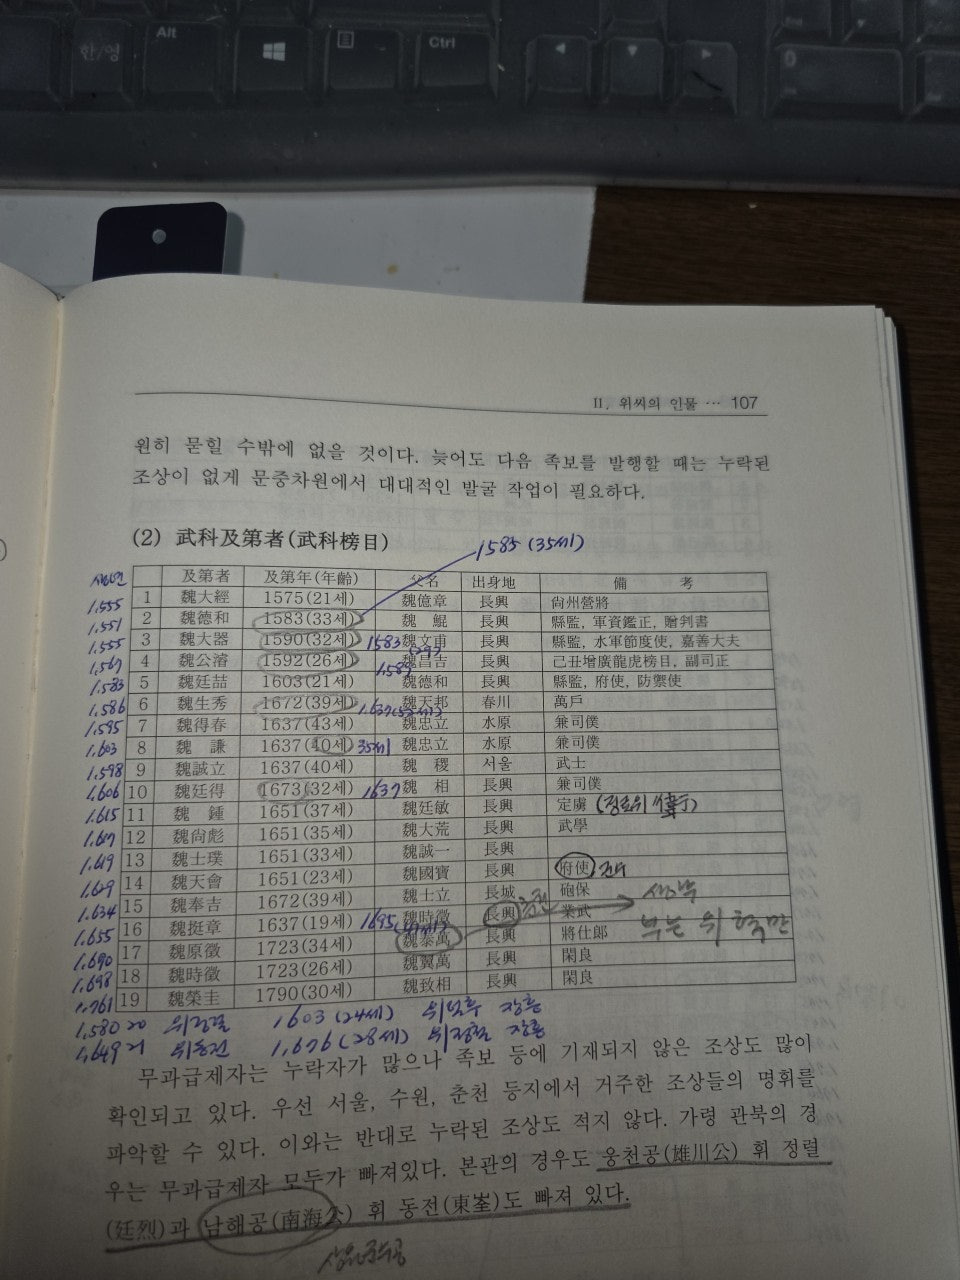 한/영
Alt
Ctrl
II. 위씨의 인물 … 107
원히 묻힐 수밖에 없을 것이다. 늦어도 다음 족보를 발행할 때는 누락된
조상이 없게 문중차원에서 대대적인 발굴 작업이 필요하다.
(2) 武科及第者(武科榜目)
1585 (35세)
及第者 及第年(年齡) 父名 出身地 備 考
1,555 1 魏大經 1575(21세) 魏億章 長興 尙州營將
1,551 2 魏德和 1583(33세) 魏 鯤 長興 縣監, 軍資鑑正, 贈判書
1,555 3 魏大器 1590(32세) 1583 魏文甫 長興 縣監, 水軍節度使, 嘉善大夫
1,567 4 魏公濬 1592(26세) 魏昌吉 長興 己丑增廣龍虎榜目, 副司正
1,583 5 魏廷喆 1603(21세) 魏德和 長興 縣監, 府使, 防禦使
1,586 6 魏生秀 1672(39세) 1,637 魏天邦 春川 萬戶
1,595 7 魏得春 1637(43세) 魏忠立 水原 兼司僕
1,603 8 魏 謙 1637(40세) 35세 魏忠立 水原 兼司僕
1,598 9 魏誠立 1637(40세) 魏 稷 서울 武士
1,606 10 魏廷得 1673(32세) 1637 魏 相 長興 兼司僕
1,615 11 魏 鍾 1651(37세) 魏廷敏 長興 定虜
1,617 12 魏尙彪 1651(35세) 魏大荒 長興 武學
1,619 13 魏士璞 1651(33세) 魏誠一 長興
1,629 14 魏天會 1651(23세) 魏國寶 長興 府使
1,634 15 魏奉吉 1672(39세) 魏士立 長城 砲保
1,655 16 魏挺章 1637(19세) 1695 魏時徵 長興 業武
1,690 17 魏原徵 1723(34세) 魏泰萬 長興 將仕郞
1,698 18 魏時徵 1723(26세) 魏翼萬 長興 閑良
1,761 19 魏榮圭 1790(30세) 魏致相 長興 閑良
1,580 20 1,603 (24세) 장흥
1,649 21 위동전 1,676 (28세) 위정철 장흥
무과급제자는 누락자가 많으나 족보 등에 기재되지 않은 조상도 많이
확인되고 있다. 우선 서울, 수원, 춘천 등지에서 거주한 조상들의 명휘를
파악할 수 있다. 이와는 반대로 누락된 조상도 적지 않다. 가령 관북의 경
우는 무과급제자 모두가 빠져있다. 본관의 경우도 웅천공(雄川公) 휘 정렬
(廷烈)과 남해공(南海公) 휘 동전(東峑)도 빠져 있다.